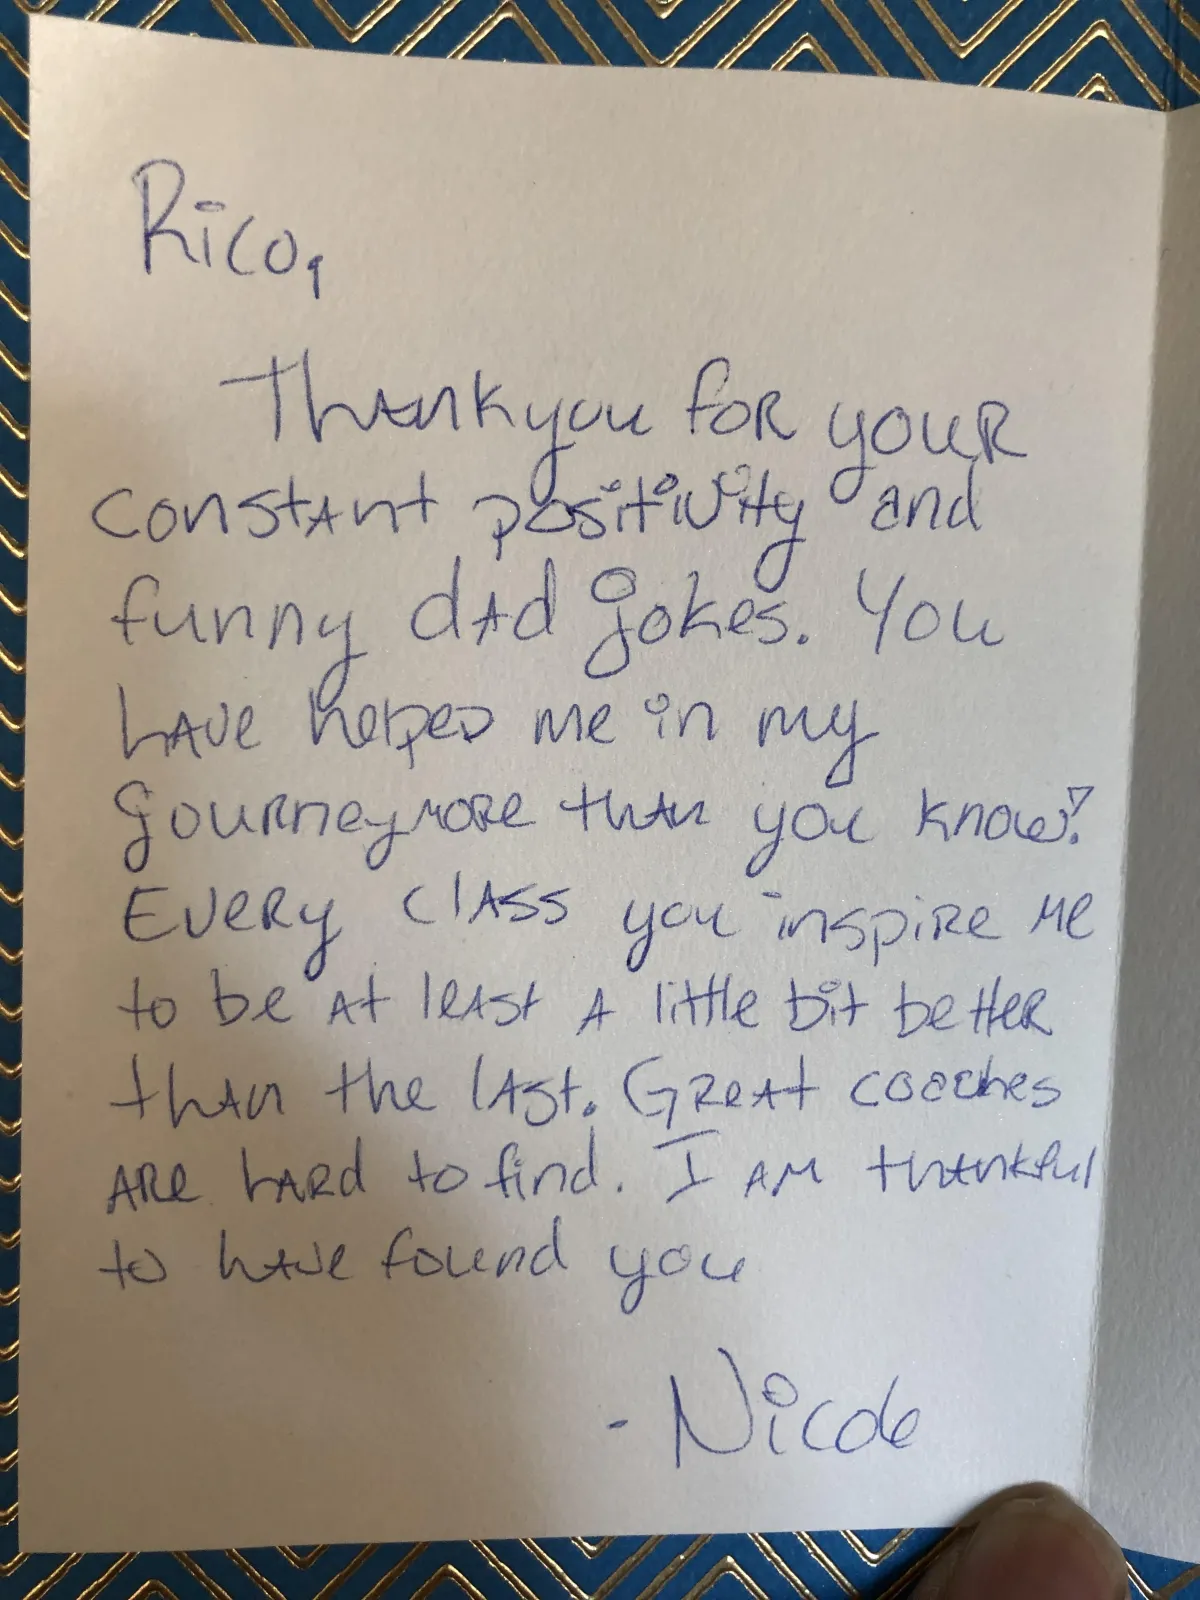 Rico,
Thankyou for your
constant positivity and
funny dad jokes. You
have helped me in my
journey more than you know!
Every class you inspire me
to be at least a little bit better
than the last. Great coaches
are hard to find. I am thankful
to have found you
- Nicole